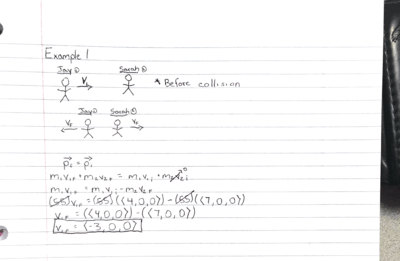 Example 1
Jay① Sarah②
V₁ * Before collision
Jay① Sarah②
V₁f V₂f
P⃗f = P⃗i
m₁V₁f + m₂V₂f = m₁V₁i + m₂V₂i 0
m₁V₁f = m₁V₁i - m₂V₂f
(55)V₁f = (55)(⟨4,0,0⟩) - (55)(⟨7,0,0⟩)
V₁f = (⟨4,0,0⟩) - (⟨7,0,0⟩)
V₁f = ⟨-3,0,0⟩